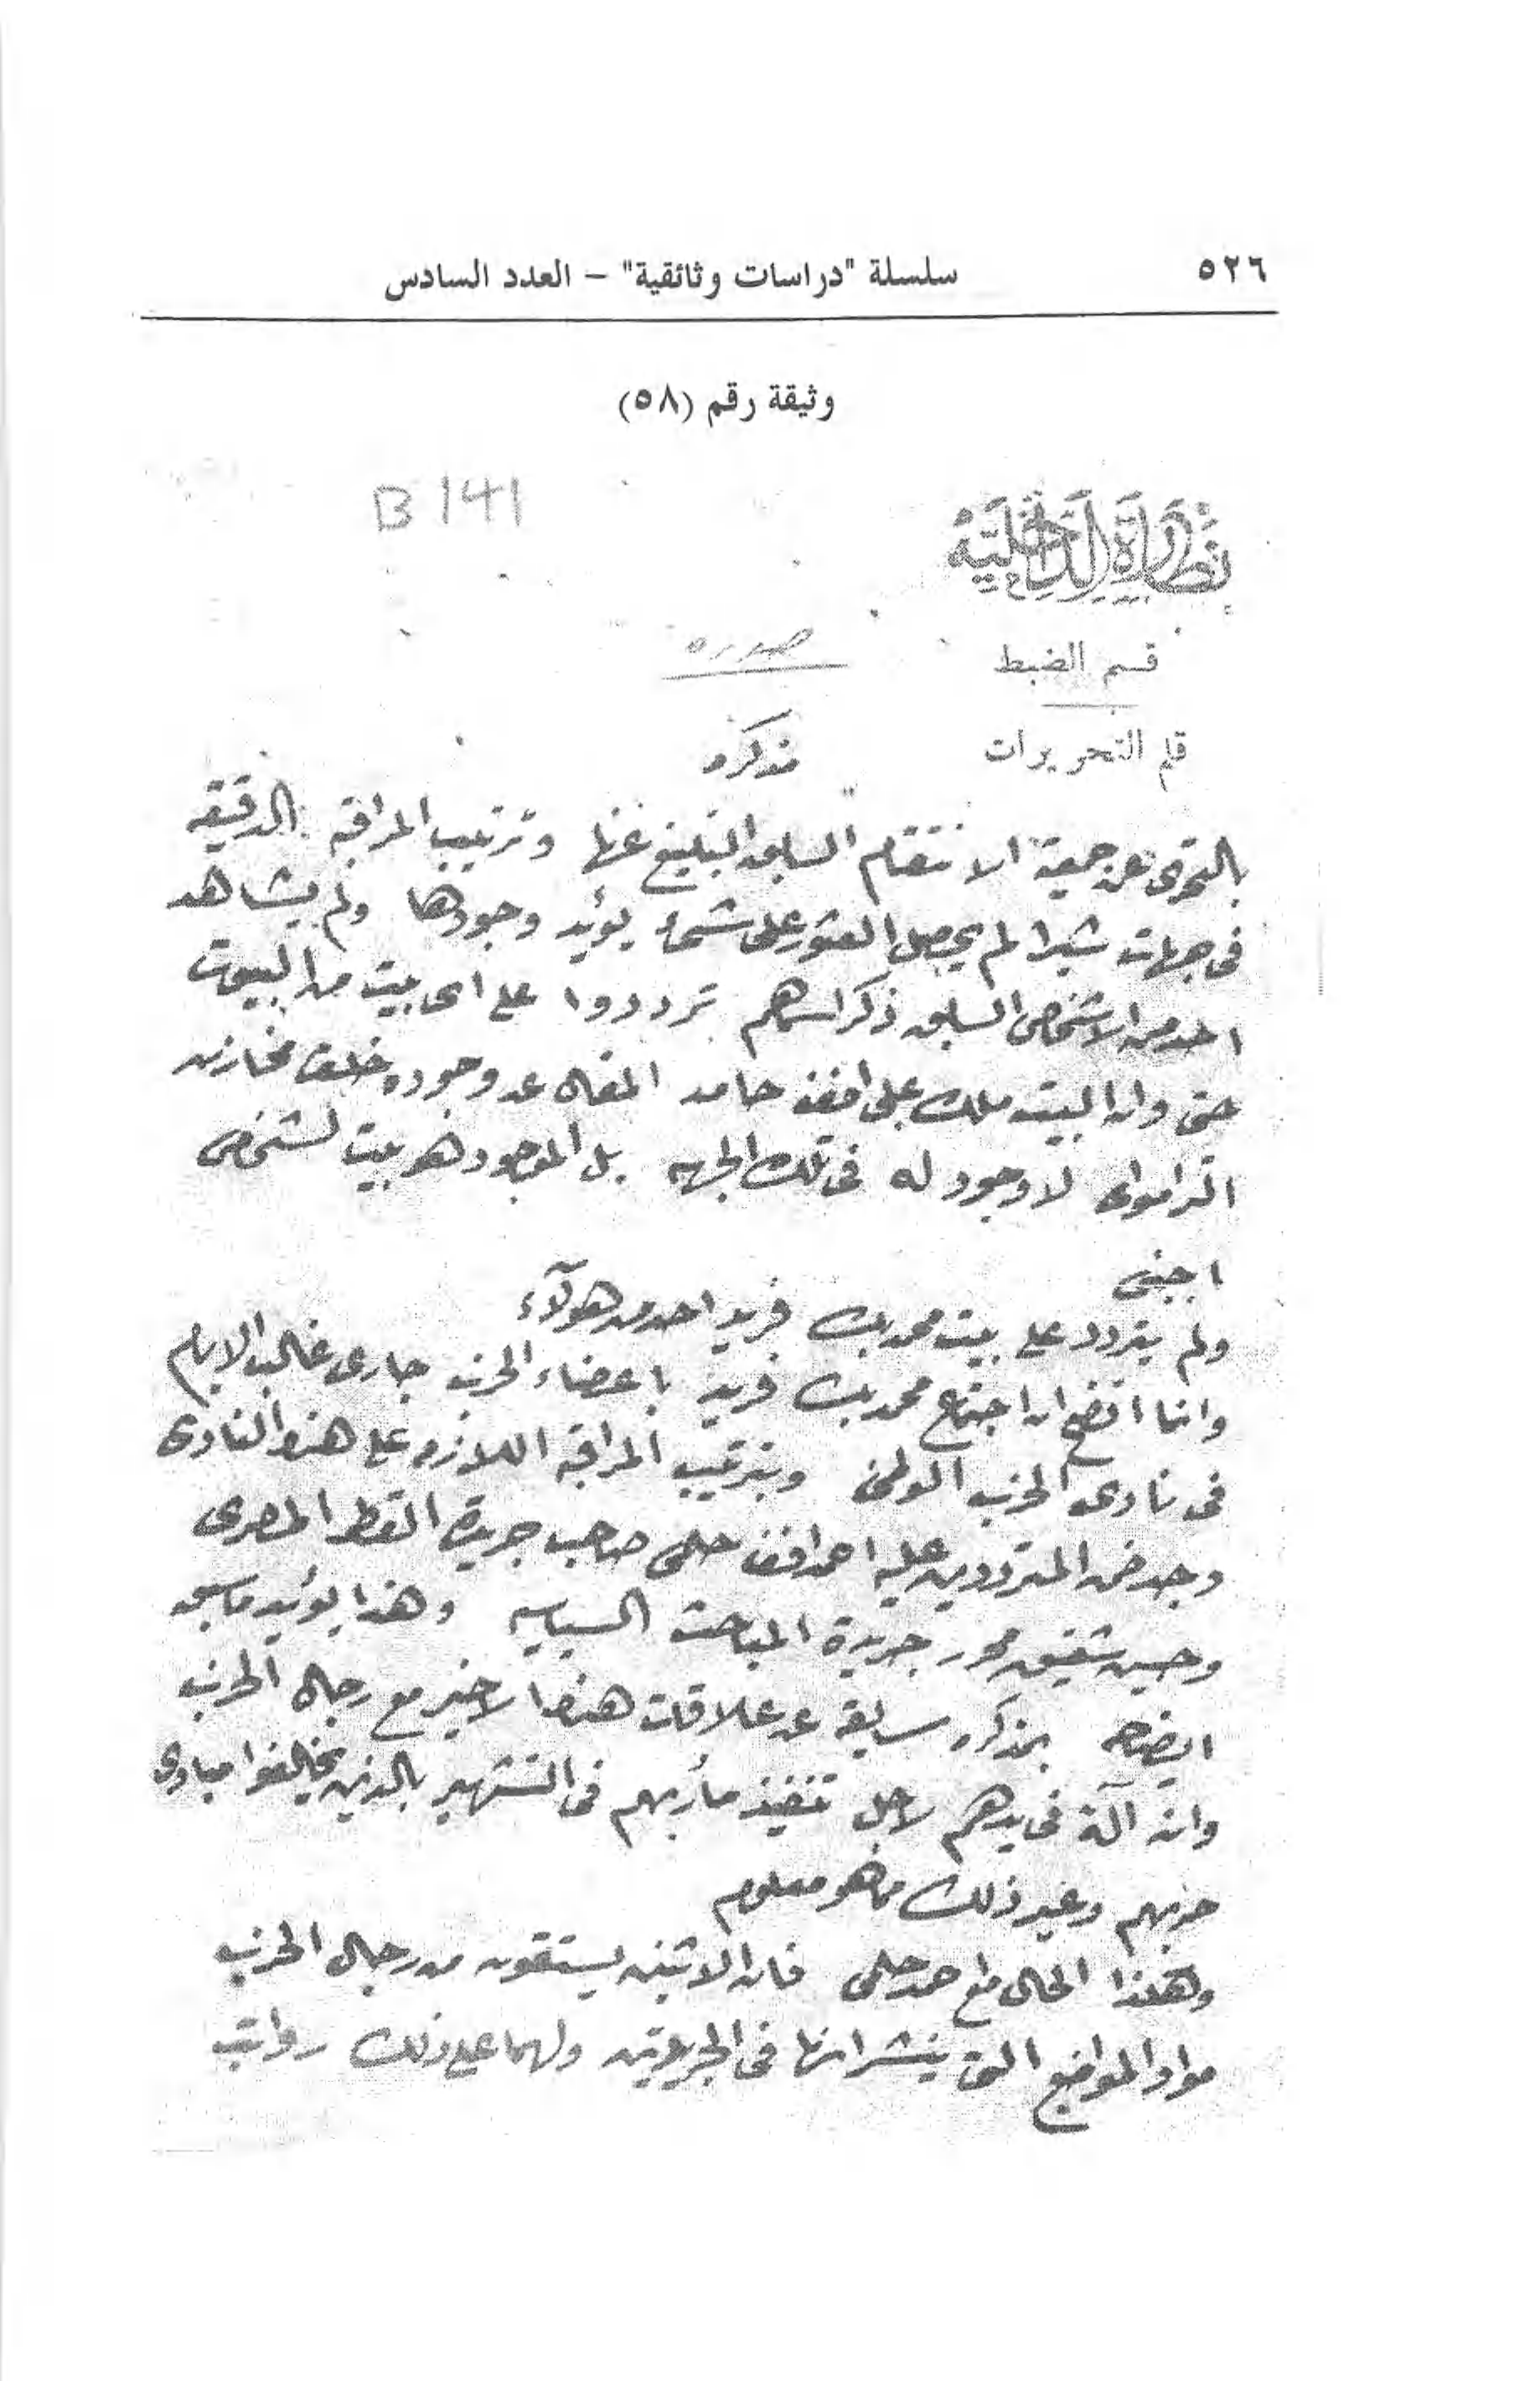 ٥٢٦
سلسلة "دراسات وثائقية" – العدد السادس
وثيقة رقم (٥٨)
B 141
نظارة الداخلية
صوره
قسم الضبط
قلم التحريرات
مذكره
بالتحرى عن جمعية الانتقام السابق التبليغ عنها وترتيب المراقبه الدقيقه
فى جهات شبرا لم يحصل العثور على شئ يؤيد وجودها ولم يشاهد
احد من الاشخاص السابق ذكر اسماهم ترددوا على اى بيت من البيوت
حتى وان البيت ملك على افندى حامد المقال عن وجوده خلف مخازن
الترامواى لا وجود له فى تلك الجهه بل الموجود هو بيت لشخص
اجنبى
ولم يتردد على بيت محمد بك فريد احد من هولآء
وانما اتضح ان اجتماع محمد بك فريد باعضاء الحزب جارى غالب الايام
فى نادى الحزب الوطنى وبترتيب المراقبه اللازمه على هذا النادى
وجد ضمن المترددين عليه احمد افندى حلمى صاحب جريدة القطر المصرى
وحسين شفيق محرر جريدة المباحث السياسيه وهذا يؤيد ما سبق
ايضاحه بمذكره سابقه عن علاقات هذا الاخير مع رجال الحزب
وانه آلة فى يدهم لاجل تنفيذ مأربهم فى التشهير بالذين يخالفوا مبادى
حزبهم وغير ذلك مما هو معلوم
وهكذا الحال مع احمد حلمى فان الاثنين يستقون من رجال الحزب
مواد المواضيع التى ينشرانها فى الجريدتين ولهما على ذلك رواتب